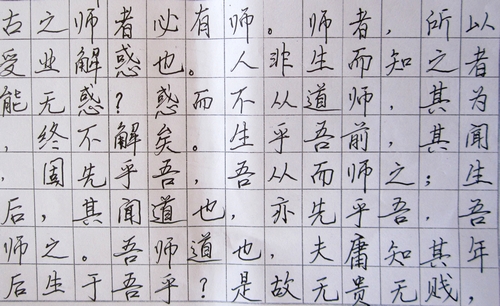 古之师者必有师。师者，所以
受业解惑也。人非生而知之者
能无惑？惑而不从道师，其为
，终不解矣。生乎吾前，其闻
，固先乎吾，吾从而师之；生
后，其闻道也，亦先乎吾，吾
师之。吾师道也，夫庸知其年
后生于吾乎？是故无贵无贱，